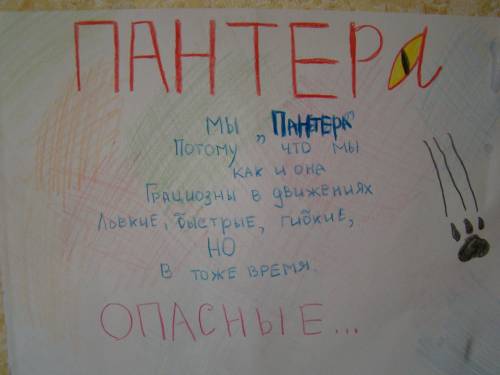 ПАНТЕРа
МЫ „ПАНТЕРА"
ПОТОМУ ЧТО МЫ
КАК И ОНА
ГРАЦИОЗНЫ В ДВИЖЕНИЯХ
ЛОВКИЕ, БЫСТРЫЕ, ГИБКИЕ,
НО
В ТОЖЕ ВРЕМЯ.
ОПАСНЫЕ...